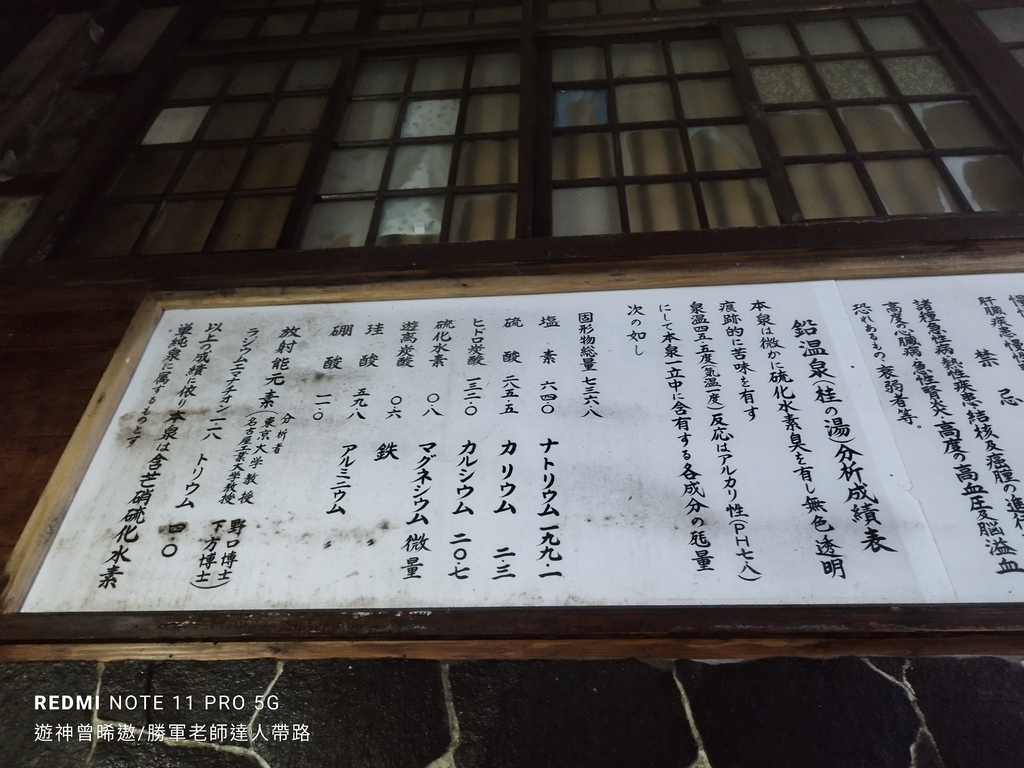 禁忌
諸種急性病、熱性疾患、結核及癌腫の進行
高度の心臓病、急性腎炎、高度の高血圧、脳溢血
恐れあるもの、衰弱者等。
鉛温泉(桂の湯)分析成績表
本泉は微かに硫化水素臭を有し無色透明
痕跡的に苦味を有す
泉温四五・五度(気温一度)反応はアルカリ性(PH七・八)
にして本泉一立中に含有する各成分の瓱量
次の如し
固形物総量 七三六・八
塩素 六四・〇 ナトリウム 一九九・一
硫酸 二八五・五 カリウム 二・三
ヒドロ炭酸 一三二・〇 カルシウム 二〇・七
硫化水素 〇・八 マグネシウム 微量
遊离炭酸 〇・六 鉄 〃
珪酸 五九・八 アルミニウム 〃
硼酸 一一・〇
放射能元素 分析者(東京大学教授 野口博士 名古屋工業大学教授 下方博士)
ラジウムエマナチオン 一・八 トリウム 四・〇
以上の成績に依り本泉は含芒硝硫化水素
単純泉に属するものとす
REDMI NOTE 11 PRO 5G
遊神曾晞遨/勝軍老師達人帶路